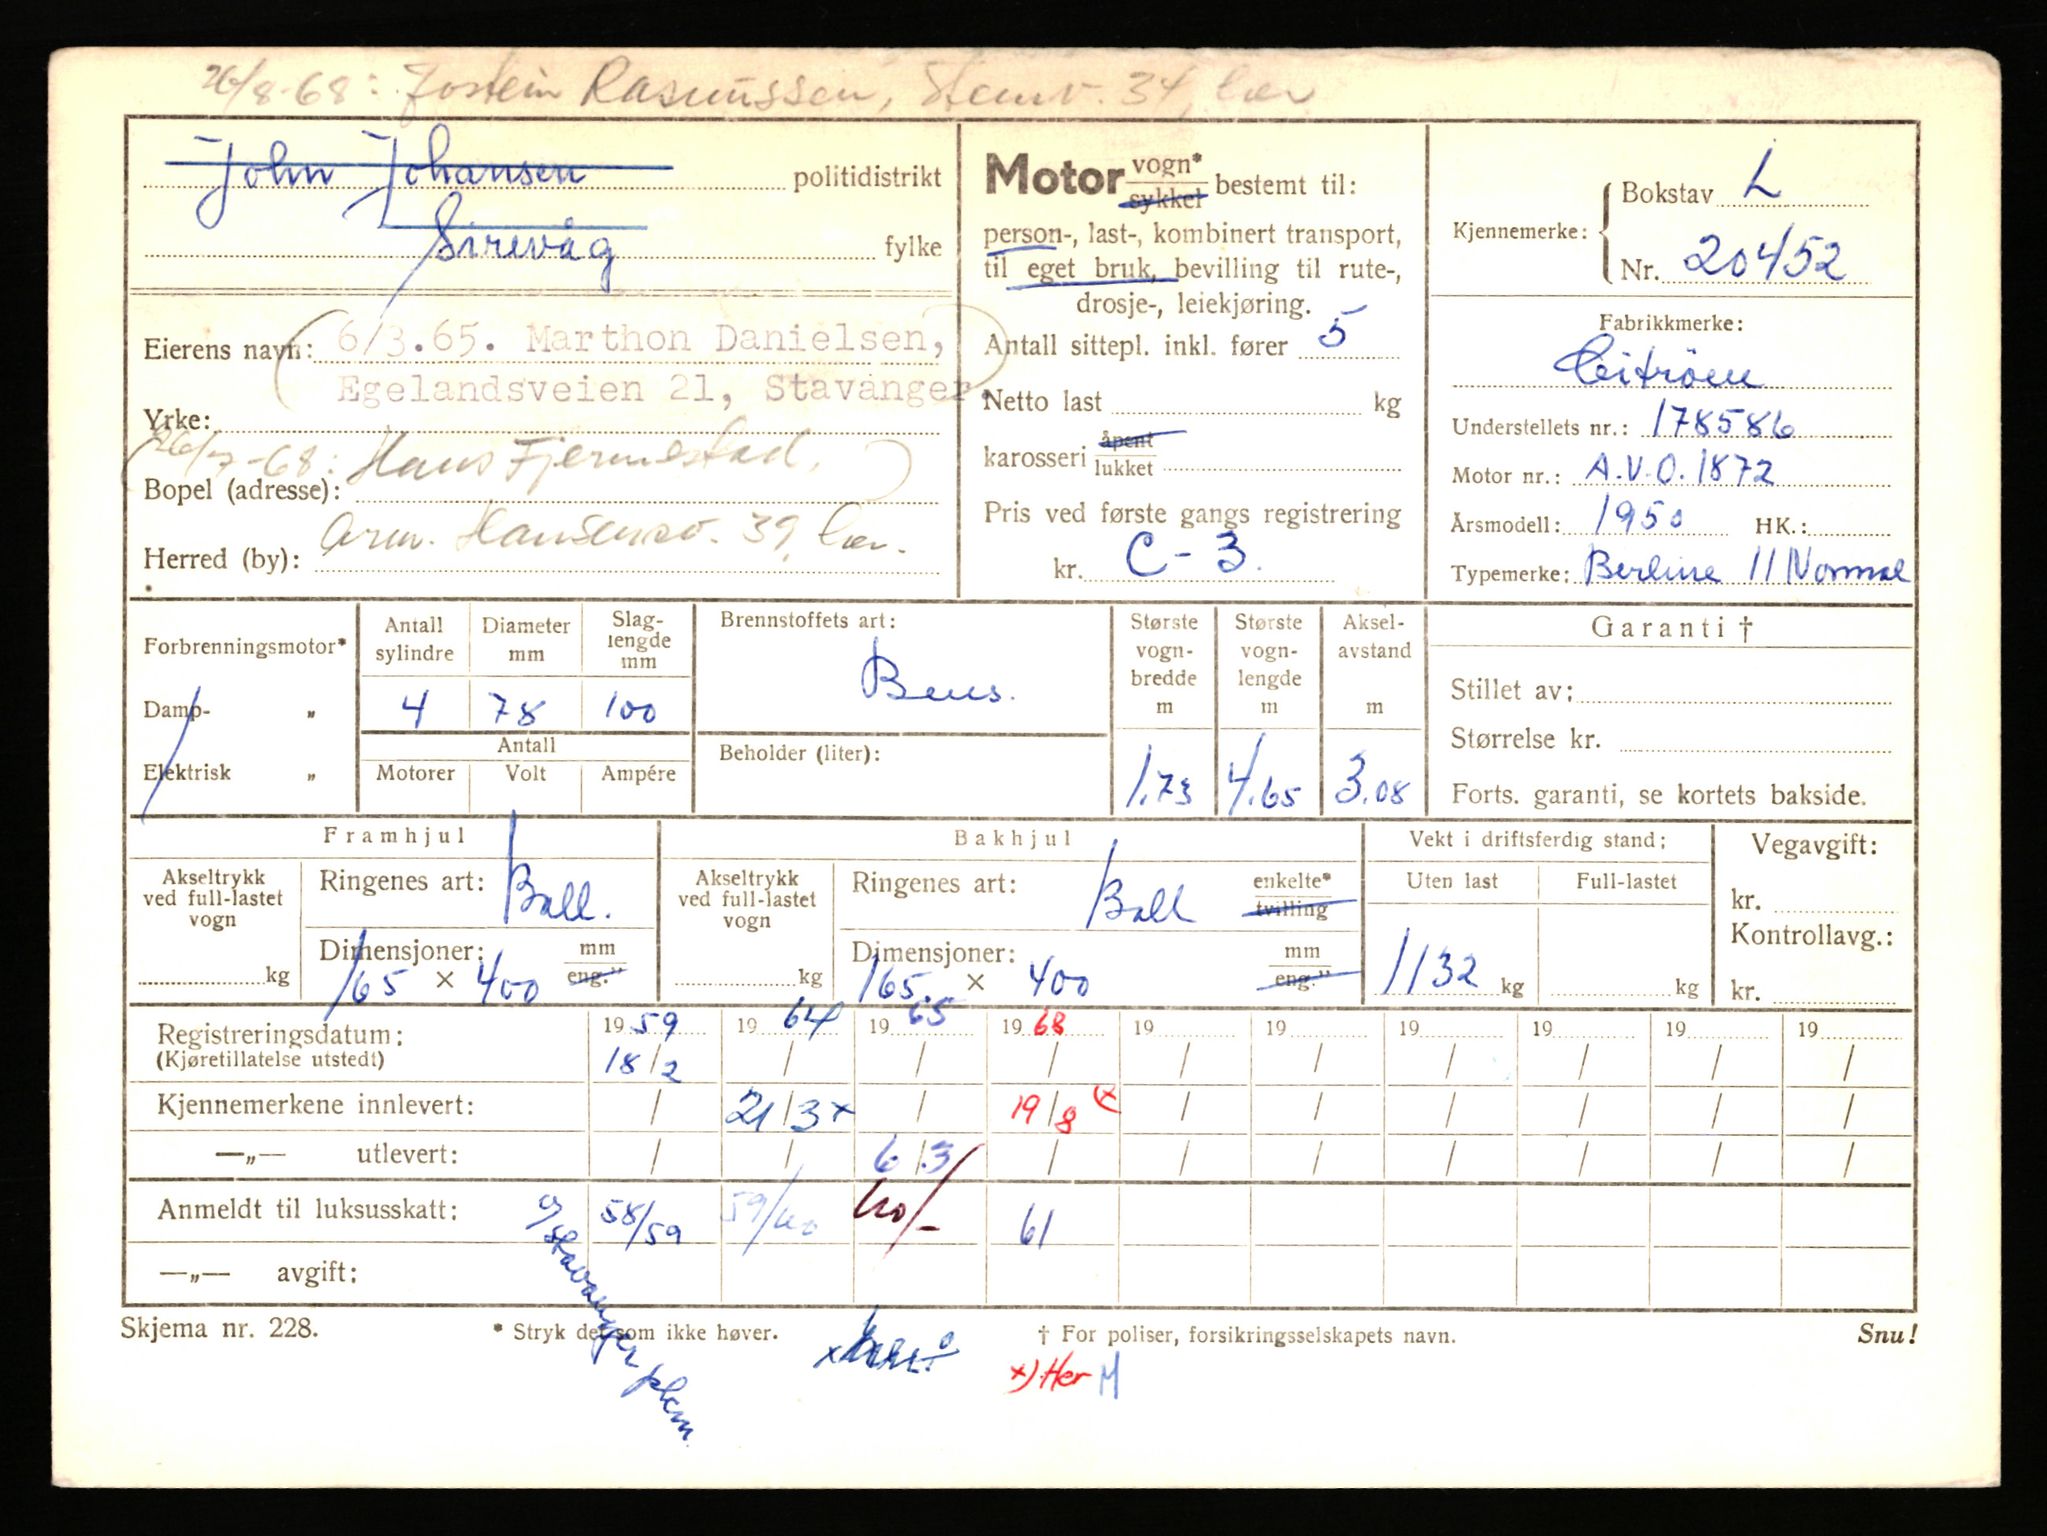 26/8-68: Jostein Rasmussen, Stemv. 34, her
John Johansen politidistrikt
Sirevåg fylke
Eierens navn: 6/3.65. Marthon Danielsen,
Egelandsveien 21, Stavanger.
Yrke:
26/7-68: Hans Fjermestad,
Bopel (adresse):
Arm. Hansensv. 39, her.
Herred (by):
Motor vogn* sykkel bestemt til:
person-, last-, kombinert transport,
til eget bruk, bevilling til rute-,
drosje-, leiekjøring.
Antall sittepl. inkl. fører 5
Netto last kg
karosseri åpent lukket
Pris ved første gangs registrering
kr. C-3.
Kjennemerke: Bokstav L
Nr. 20452
Fabrikkmerke:
Citröen
Understellets nr.: 178586
Motor nr.: A.V.O. 1872
Årsmodell: 1950 HK.:
Typemerke: Berline 11 Normal
Forbrenningsmotor*
Damp- „
Elektrisk „
Antall sylindre Diameter mm Slaglengde mm
4 78 100
Antall
Motorer Volt Ampére
Brennstoffets art:
Bens.
Beholder (liter):
Største vogn-bredde m Største vogn-lengde m Aksel-avstand m
1.73 4.65 3.08
Garanti †
Stillet av:
Størrelse kr.
Forts. garanti, se kortets bakside.
Framhjul
Akseltrykk ved full-lastet vogn
kg
Ringenes art: Ball.
Dimensjoner: mm eng."
165 × 400
Bakhjul
Akseltrykk ved full-lastet vogn
kg
Ringenes art: Ball enkelte* tvilling
Dimensjoner: mm eng."
165 × 400
Vekt i driftsferdig stand:
Uten last Full-lastet
1132 kg kg
Vegavgift:
kr.
Kontrollavg.:
kr.
Registreringsdatum: 1959 1964 1965 1968 19 19 19 19 19 19
(Kjøretillatelse utstedt) 18/2 / / / / / / / / /
Kjennemerkene innlevert: / 21/3 x / 19/8 x / / / / / /
—„— utlevert: / / 6/3 / / / / / / /
Anmeldt til luksusskatt: 58/59 59/60 60/- 61
—„— avgift:
Stavanger pkm.
Skjema nr. 228. * Stryk det som ikke høver. † For poliser, forsikringsselskapets navn. Snu!
x) Her M